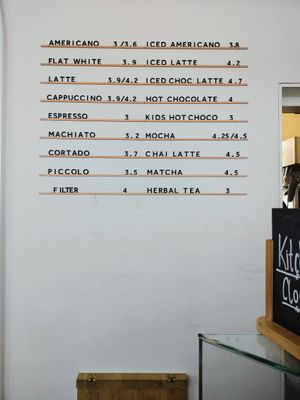 AMERICANO 3/3.6 ICED AMERICANO 3.8
FLAT WHITE 3.9 ICED LATTE 4.2
LATTE 3.9/4.2 ICED CHOC LATTE 4.7
CAPPUCCINO 3.9/4.2 HOT CHOCOLATE 4
ESPRESSO 3 KIDS HOT CHOCO 3
MACHIATO 3.2 MOCHA 4.25/4.5
CORTADO 3.7 CHAI LATTE 4.5
PICCOLO 3.5 MATCHA 4.5
FILTER 4 HERBAL TEA 3
Kitc
Clo